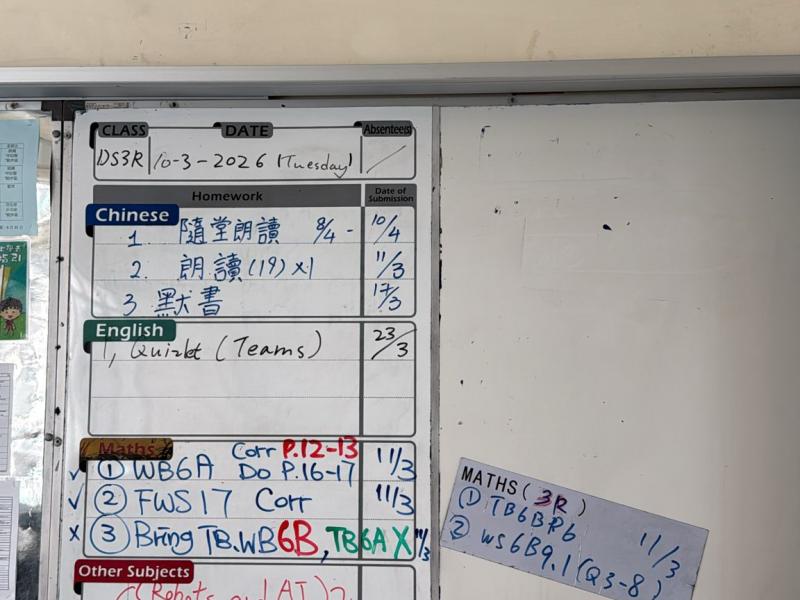 CLASS DATE Absentee(s)
DS3R 10-3-2026 (Tuesday) /
Homework Date of Submission
Chinese
1. 隨堂朗讀 8/4 - 10/4
2. 朗讀(19)x1 11/3
3 默書 17/3
English
1, Quizlet (Teams) 23/3
Maths
Corr P.12-13
✓ ① WB6A Do P.16-17 11/3
✓ ② FWS17 Corr 11/3
x ③ Bring TB.WB6B, TB6A X 11/3
Other Subjects
(Robots and AI)
MATHS( 3R )
① TB6B P.6
② WS6B9.1(Q3-8) 11/3